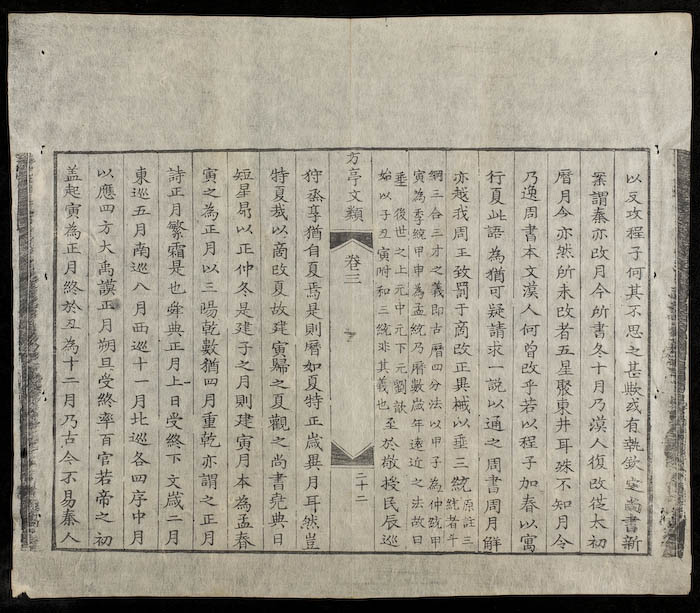 以反攻程子何其不思之甚歟或有執欽定尚書新
案謂秦亦改月令所書冬十月乃漢人復改從太初
曆月令亦然所未改者五星聚東井耳殊不知月令
乃逸周書本文漢人何曾改乎若以程子加春以寓
行夏此語為猶可疑請求一説以通之周書周月解
亦越我周王致罰于商改正異械以垂三統原註三統者斗
綱三合三才之義即古曆四分法以甲子為仲統甲
寅為季統甲申為孟統乃曆數歲年遠近之法故曰
垂 後世之上元中元下元劉歆
始以子丑寅附和三統非其義也至於敬授民辰巡
方亭文類
卷三
二十二
狩烝享猶自夏焉是則曆如夏特正歲異月耳然豈
特夏哉以商改夏故建寅歸之夏觀之尚書堯典日
短星昴以正仲冬是建子之月則建寅月本為孟春
寅之為正月以三暘乾數猶四月重乾亦謂之正月
詩正月繁霜是也舜典正月上日受終下文歲二月
東巡五月南巡八月西巡十一月北巡各四序中月
以應四方大禹謨正月朔旦受終率百官若帝之初
盖起寅為正月終於丑為十二月乃古今不易秦人